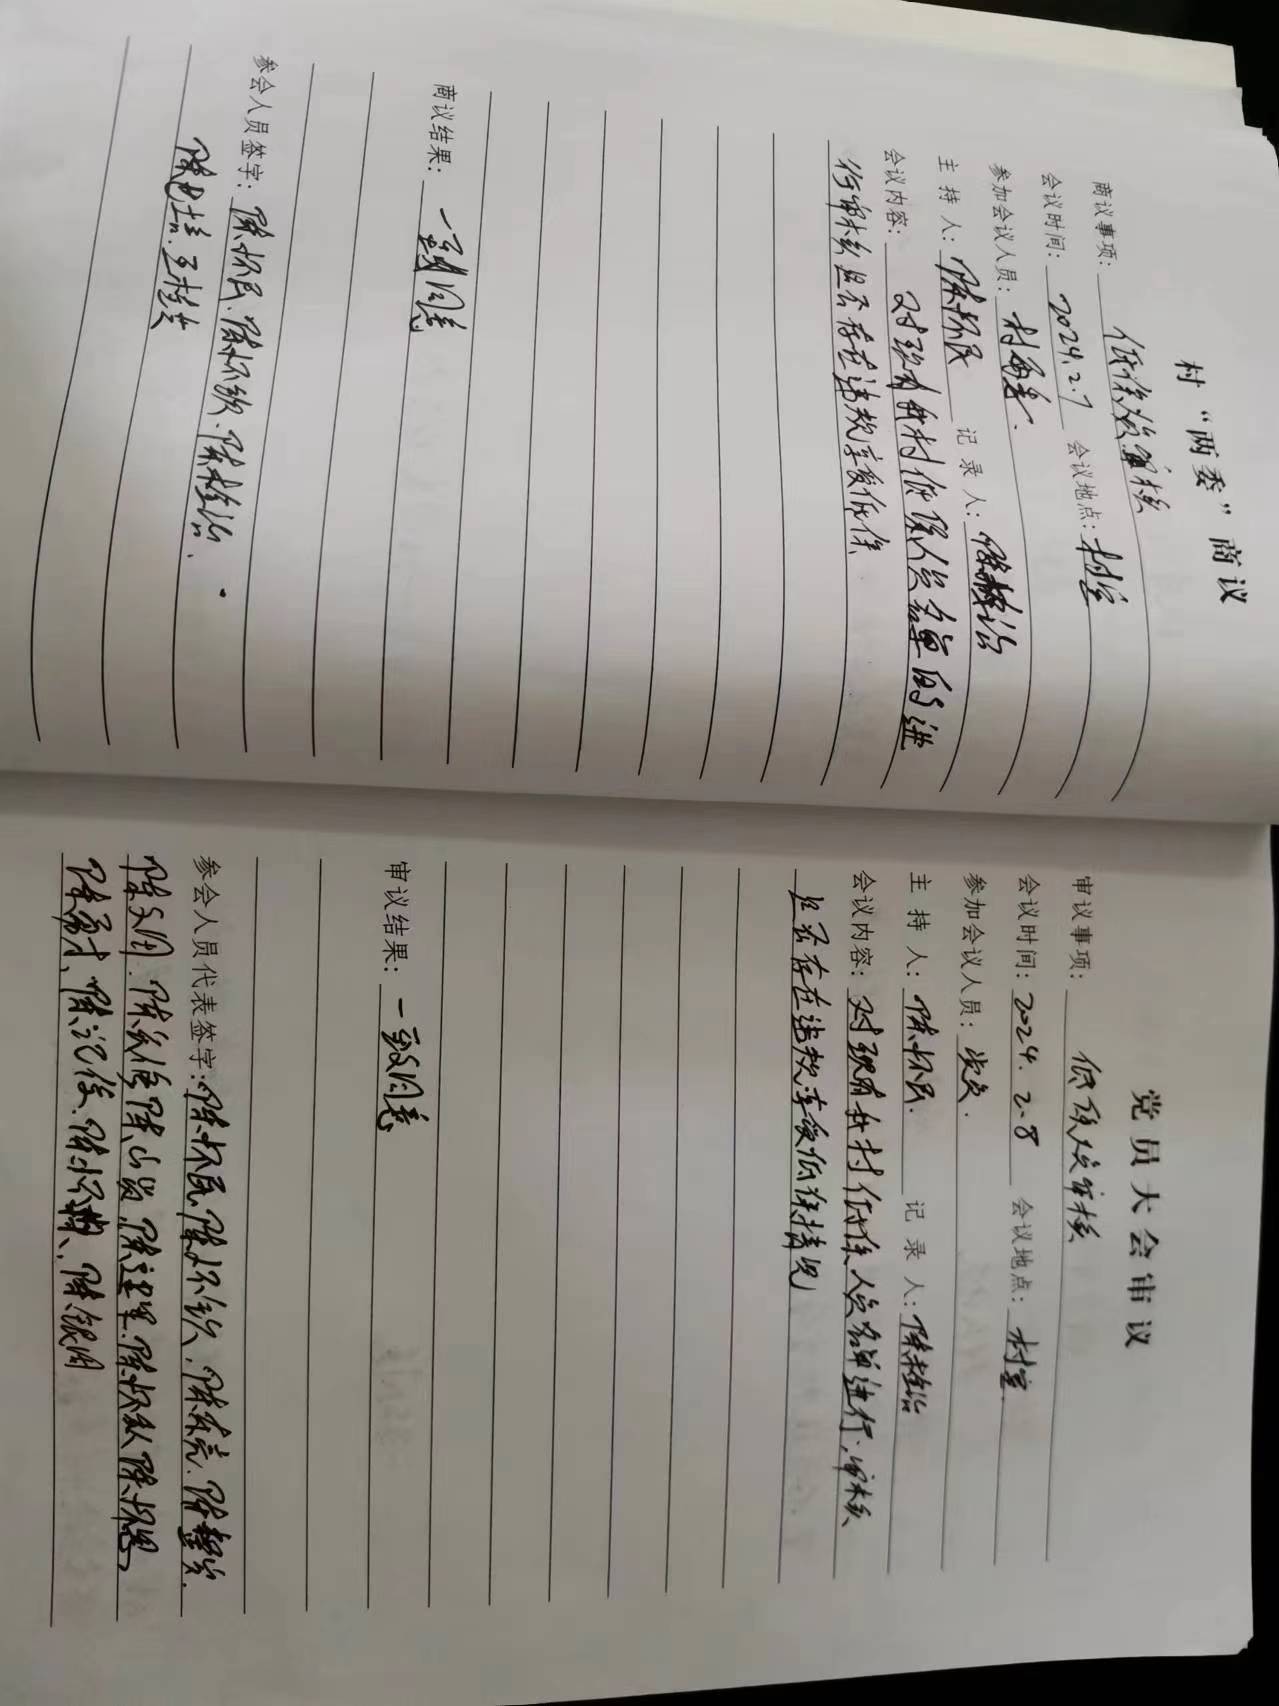 村“两委”商议
商议事项：低保户审核
会议时间：2024.2.7 会议地点：村室
参加会议人员：村两委.
主 持 人：陈怀民 记 录 人：陈治
会议内容：对现有我村低保人员名单的进
行审核是否存在违规享受低保
商议结果：一致同意
参会人员签字：陈怀民.陈怀钦.陈治.
党员大会审议
审议事项：低保人员审核
会议时间：2024.2.8 会议地点：村室.
参加会议人员：党员.
主 持 人：陈怀民. 记 录 人：陈治
会议内容：对现有我村低保人员名单进行,审核
是否存在违规享受低保情况
审议结果：一致同意
参会人员代表签字：陈怀民.陈怀钦.陈亮.陈
陈 陈 陈山 陈 陈怀 陈怀恩
陈 陈记 陈怀 陈银周